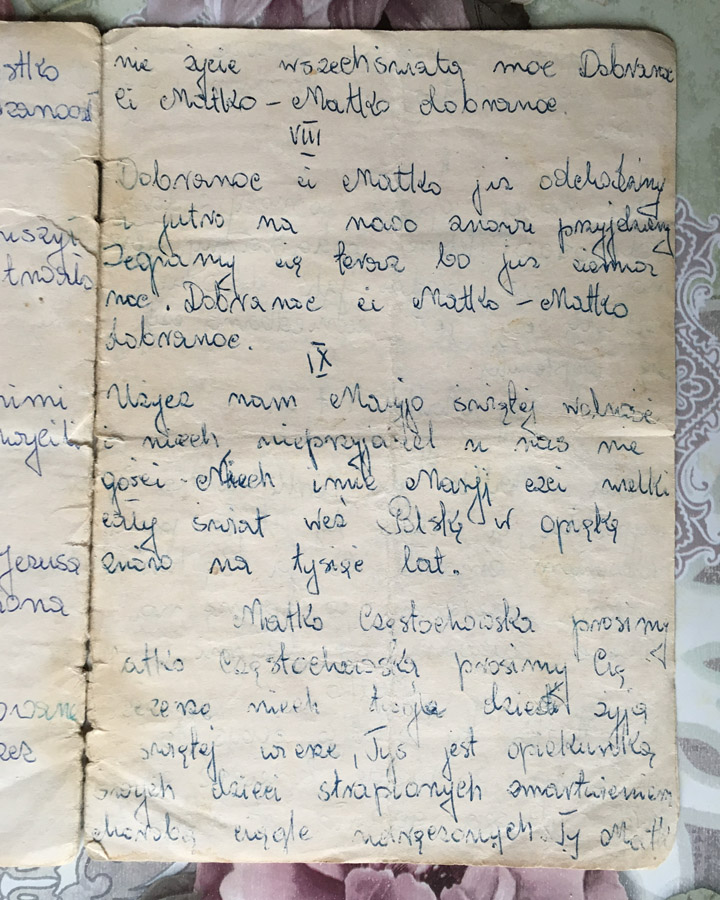 nie życie wszechświatą moc Dobranoc
Ci Matko – Matko dobranoc.
VIII
Dobranoc ci Matko już odchodzimy
i jutro na nowo znowu przyjdziemy
Żegnamy cię teraz bo już ciemna
noc. Dobranoc ci Matko – Matko
dobranoc.
IX
Użycz nam Maryjo świętej wolności
i niech nieprzyjaciel u nas nie
gości Niech imię Maryji czci wielki
cały świat weź Polskę w opiękę
znowo na tysiąc lat.
Matko Częstochowska prosimy
atko Częstochowską prosimy Cię
niech twoje dzieci żyją
świętej wierze, Tyś jest opiekunką
swych dzieci strapionych zmartwieniem
chorobą ciągle udręczonych Ty Matk
stko
uszył
nimi
Jezusa
zez